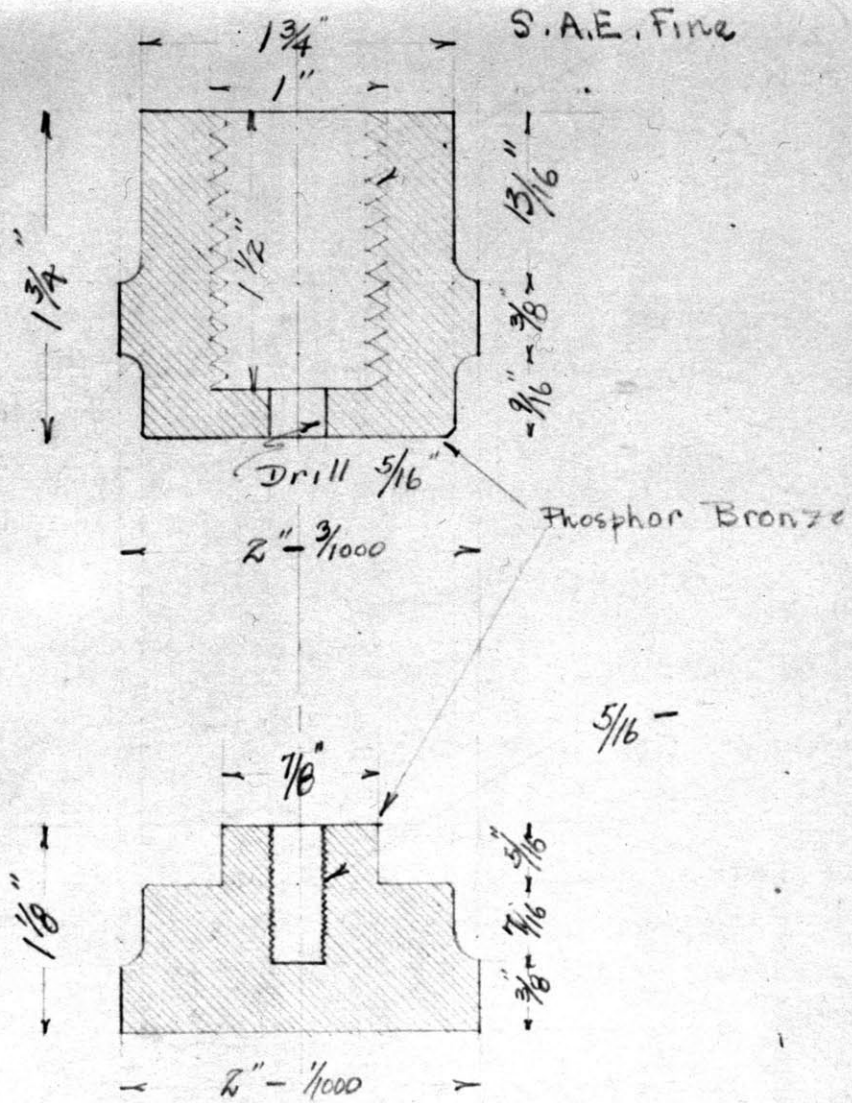 S.A.E. Fine
1 3/4"
1"
1 3/4"
1 1/2"
13/16"
3/8"
9/16"
Drill 5/16"
Phosphor Bronze
2" - 3/1000
5/16 -
7/8"
1 1/8"
5/16"
7/16
3/8"
2" - 1/1000